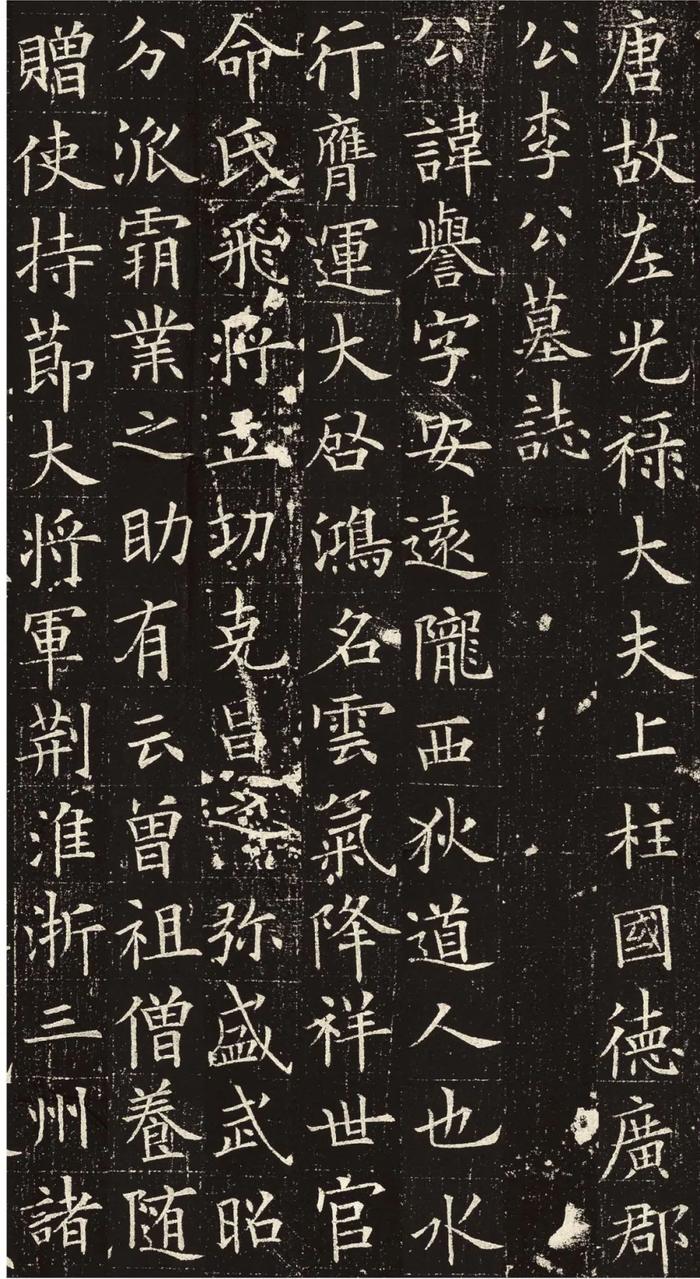 唐故左光禄大夫上柱國德廣郡
公李公墓誌
公諱譽字安遠隴西狄道人也水
行膺運大启鴻名雲氣降祥世官
命氏飛將立功克昌弥盛武昭
分派霸業之助有云曾祖僧養随
贈使持節大將軍荆淮浙三州諸